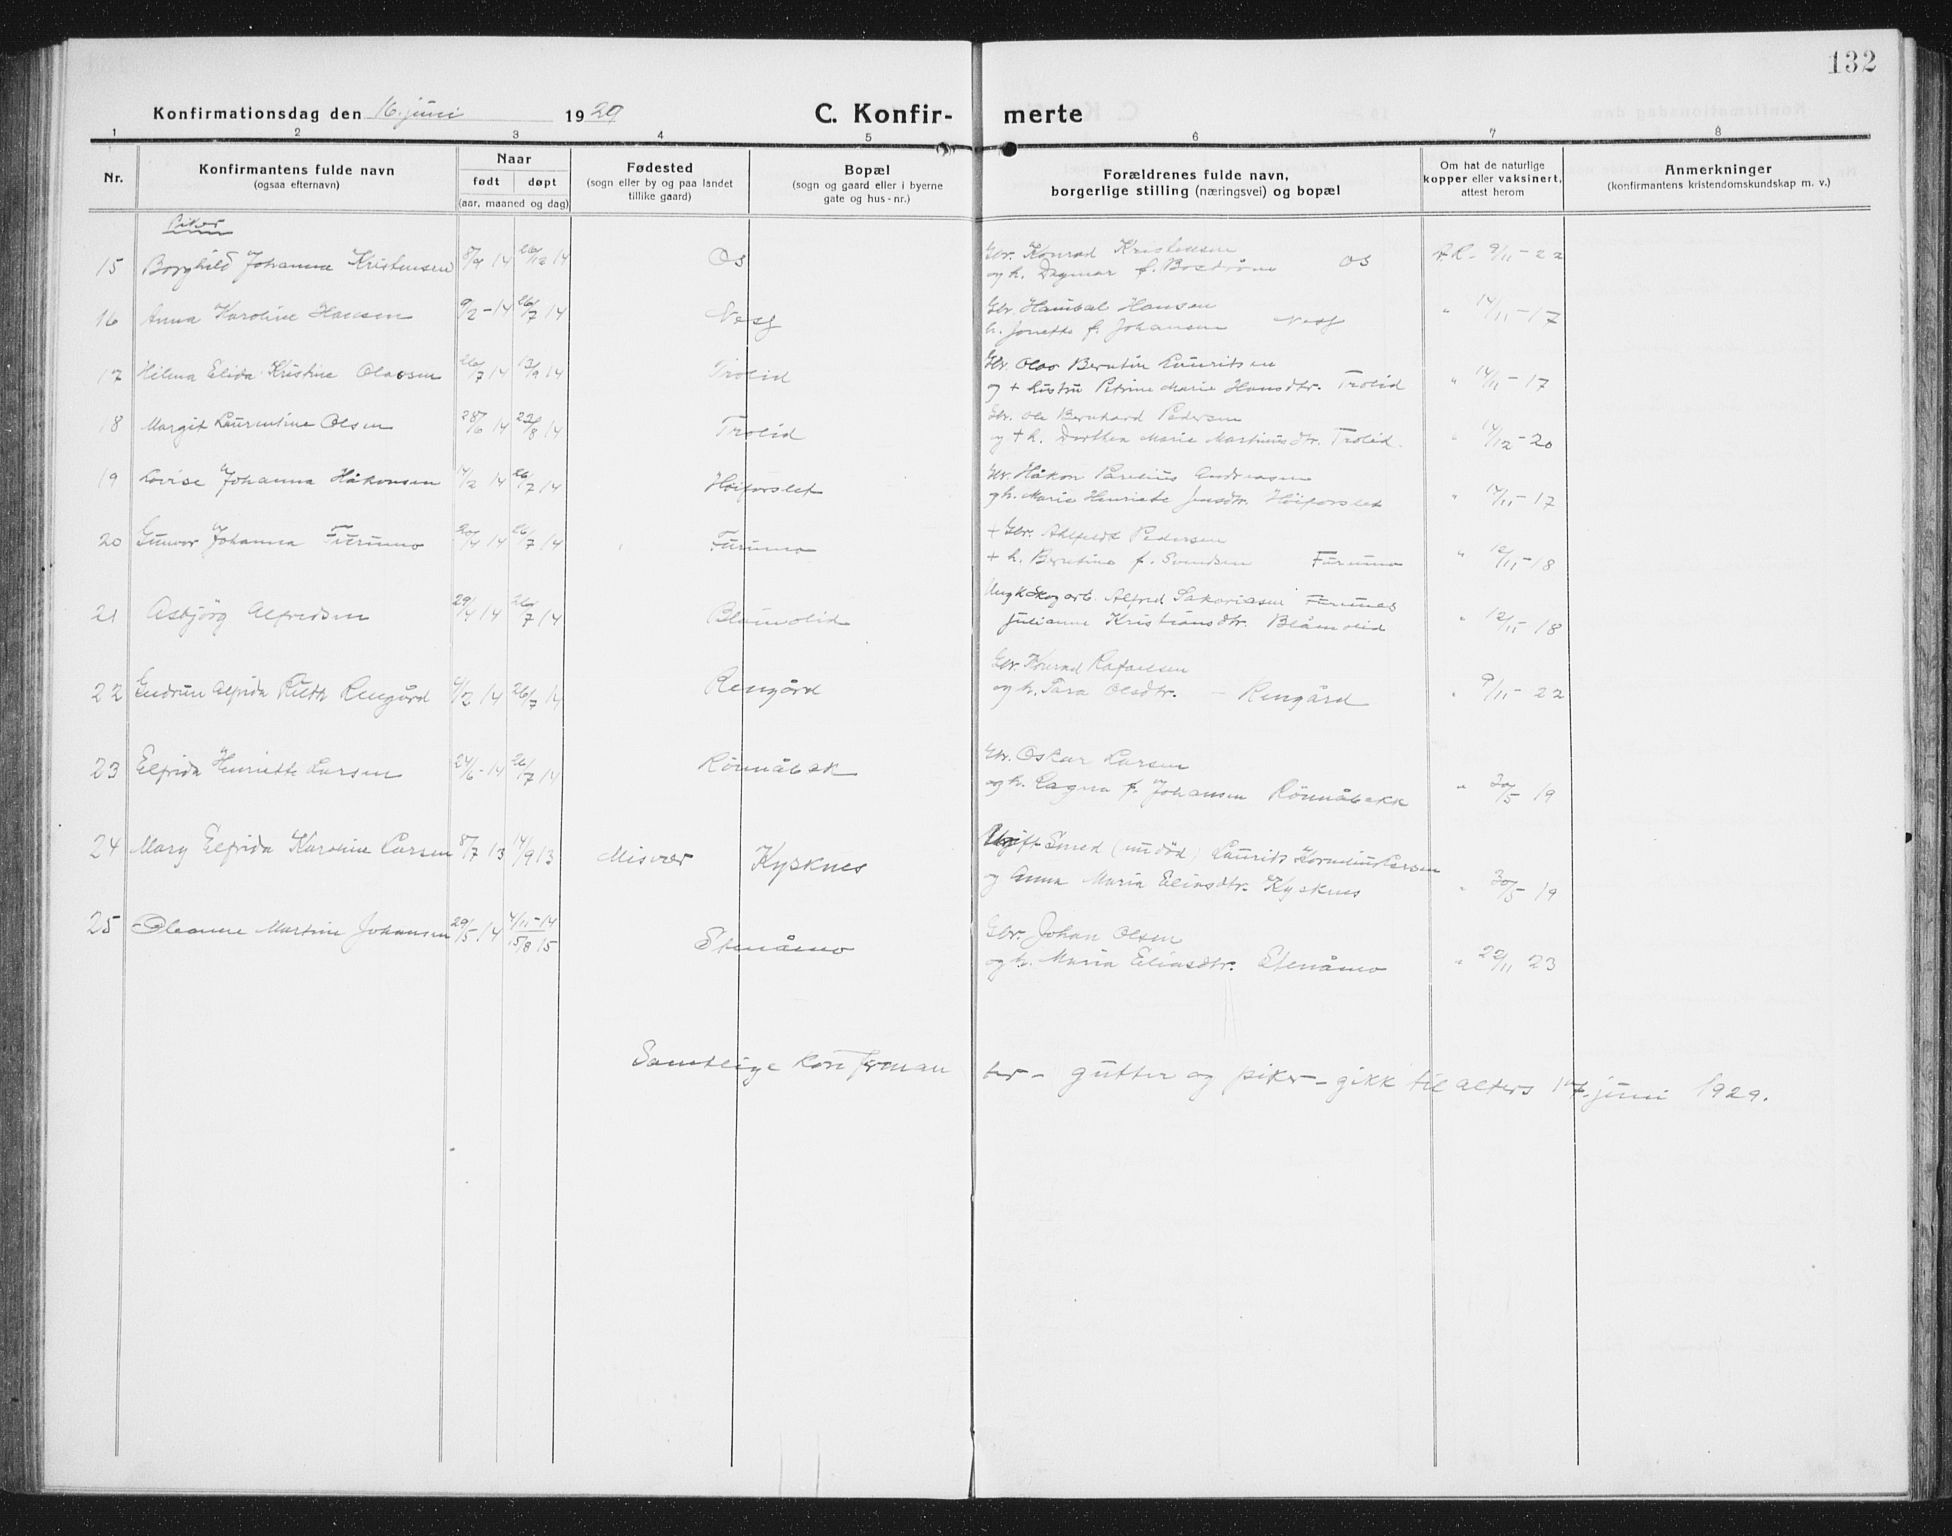 132
Konfirmationsdag den 16. juni 1929 C. Konfir- merte
1 2 3 4 5 6 7 8
Nr. Konfirmantens fulde navn (ogsaa efternavn) Naar født døpt (aar, maaned og dag) Fødested (sogn eller by og paa landet tillike gaard) Bopæl (sogn og gaard eller i byerne gate og hus-nr.) Forældrenes fulde navn, borgerlige stilling (næringsvei) og bopæl Om hat de naturlige kopper eller vaksinert, attest herom Anmerkninger (konfirmantens kristendomskundskap m. v.)
Piker
15 Borghild Johanna Kristensen 8/9 14 26/12 14 Os Gbr. Konrad Kristensen
og h. Dagmar f. Os 9/11-22
16 Anna Karoline Hansen 9/2-14 26/7 14 Nesj Gbr. Hanibal Hansen
h. Jonette f. Johansen Nesj " 14/11-17
17 Hilma Elida Kristine Olavsen 26/7 14 13/9 14 Trolid Gbr. Olav Berntin Lauritsen
og + hustru Petrine Marie Hansdtr. Trolid " 14/11-17
18 Margit Laurentine Olsen 28/6 14 23/8 14 Trolid Gbr. Ole Bernhard Pedersen
og + h. Dorthea Marie Martinusdtr. Trolid. " 14/12-20
19 Lovise Johanna Håkonsen 14/2 14 26/7 14 Høiforslet Gbr. Håkon Parelius Andreasen
og h. Marie Henriette Jensdtr. Høiforslet " 14/11-17
20 Gunvor Johanna Furumo 20/4 14 26/7 14 Furumo + Gbr. Ahlfeldt Pedersen
+ h. Berntine f. Svendsen Furumo " 12/11-18
21 Asbjörg Alfredsen 29/4 14 26/7 14 Blåmolid Ungk. Skogarb. Alfred Sakariasen Furunes
Julianne Kristiansdtr. Blåmolid " 12/11-18
22 Gudrun Alfrida Ruth Rengård 4/2 14 26/7 14 Rengård Gbr. Konrad Rafaelsen
og h. Tara Olsdtr. - Rengård " 9/11-22
23 Elfrida Henriette Larsen 24/6-14 26/7 14 Rönnåbek Gbr. Oskar Larsen
og h. Ragna f. Johansen Rönnåbekk " 30/5 19
24 Mary Elfrida Karoline Larsen 8/7 13 14/9 13 Misvær Kysknes Ugift Smed (nu död) Laurits Kornelius Larsen
og Anna Maria Eliasdtr. Kysknes " 30/5-19
25 Oleanne Martine Johansen 29/5-14 4/11-14
15/8 15 Stenåmo Gbr. Johan Olsen
og h. Maria Eliasdtr. Stenåmo " 22/11 23
Samtlige konfirman ter - gutter og piker - gikk til alters 17. juni 1929.